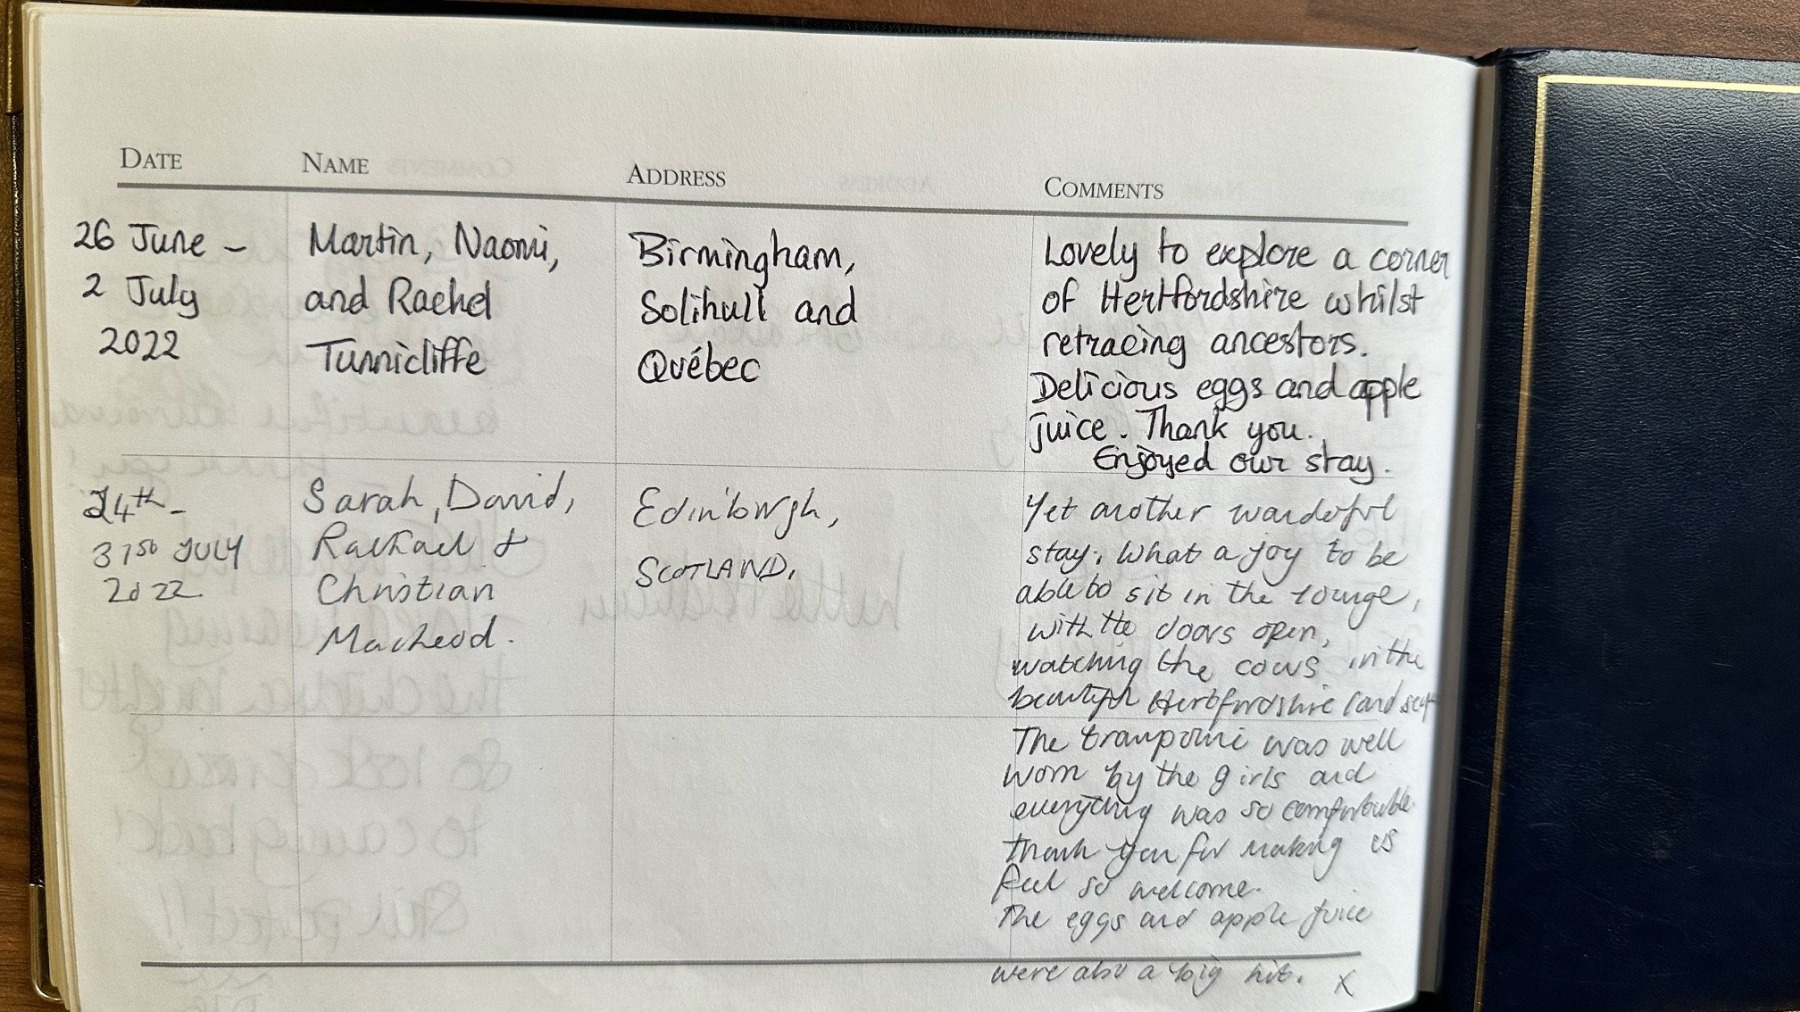 DATE NAME ADDRESS COMMENTS
26 June –
2 July
2022
Martin, Naomi,
and Rachel
Tunnicliffe
Birmingham,
Solihull and
Québec
Lovely to explore a corner
of Hertfordshire whilst
retracing ancestors.
Delicious eggs and apple
juice. Thank you.
Enjoyed our stay.
24th –
31st JULY
2022
Sarah, David,
&
Christian
MacLeod.
Edinburgh,
SCOTLAND.
Yet another wonderful
stay. What a joy to be
able to sit in the lounge,
with the doors open,
watching the cows in the
beautiful Hertfordshire
The trampoline was well
worn by the girls and
everything was so comfortable.
Thank you for making us
feel so welcome.
The eggs and apple juice
were also a big hit. X